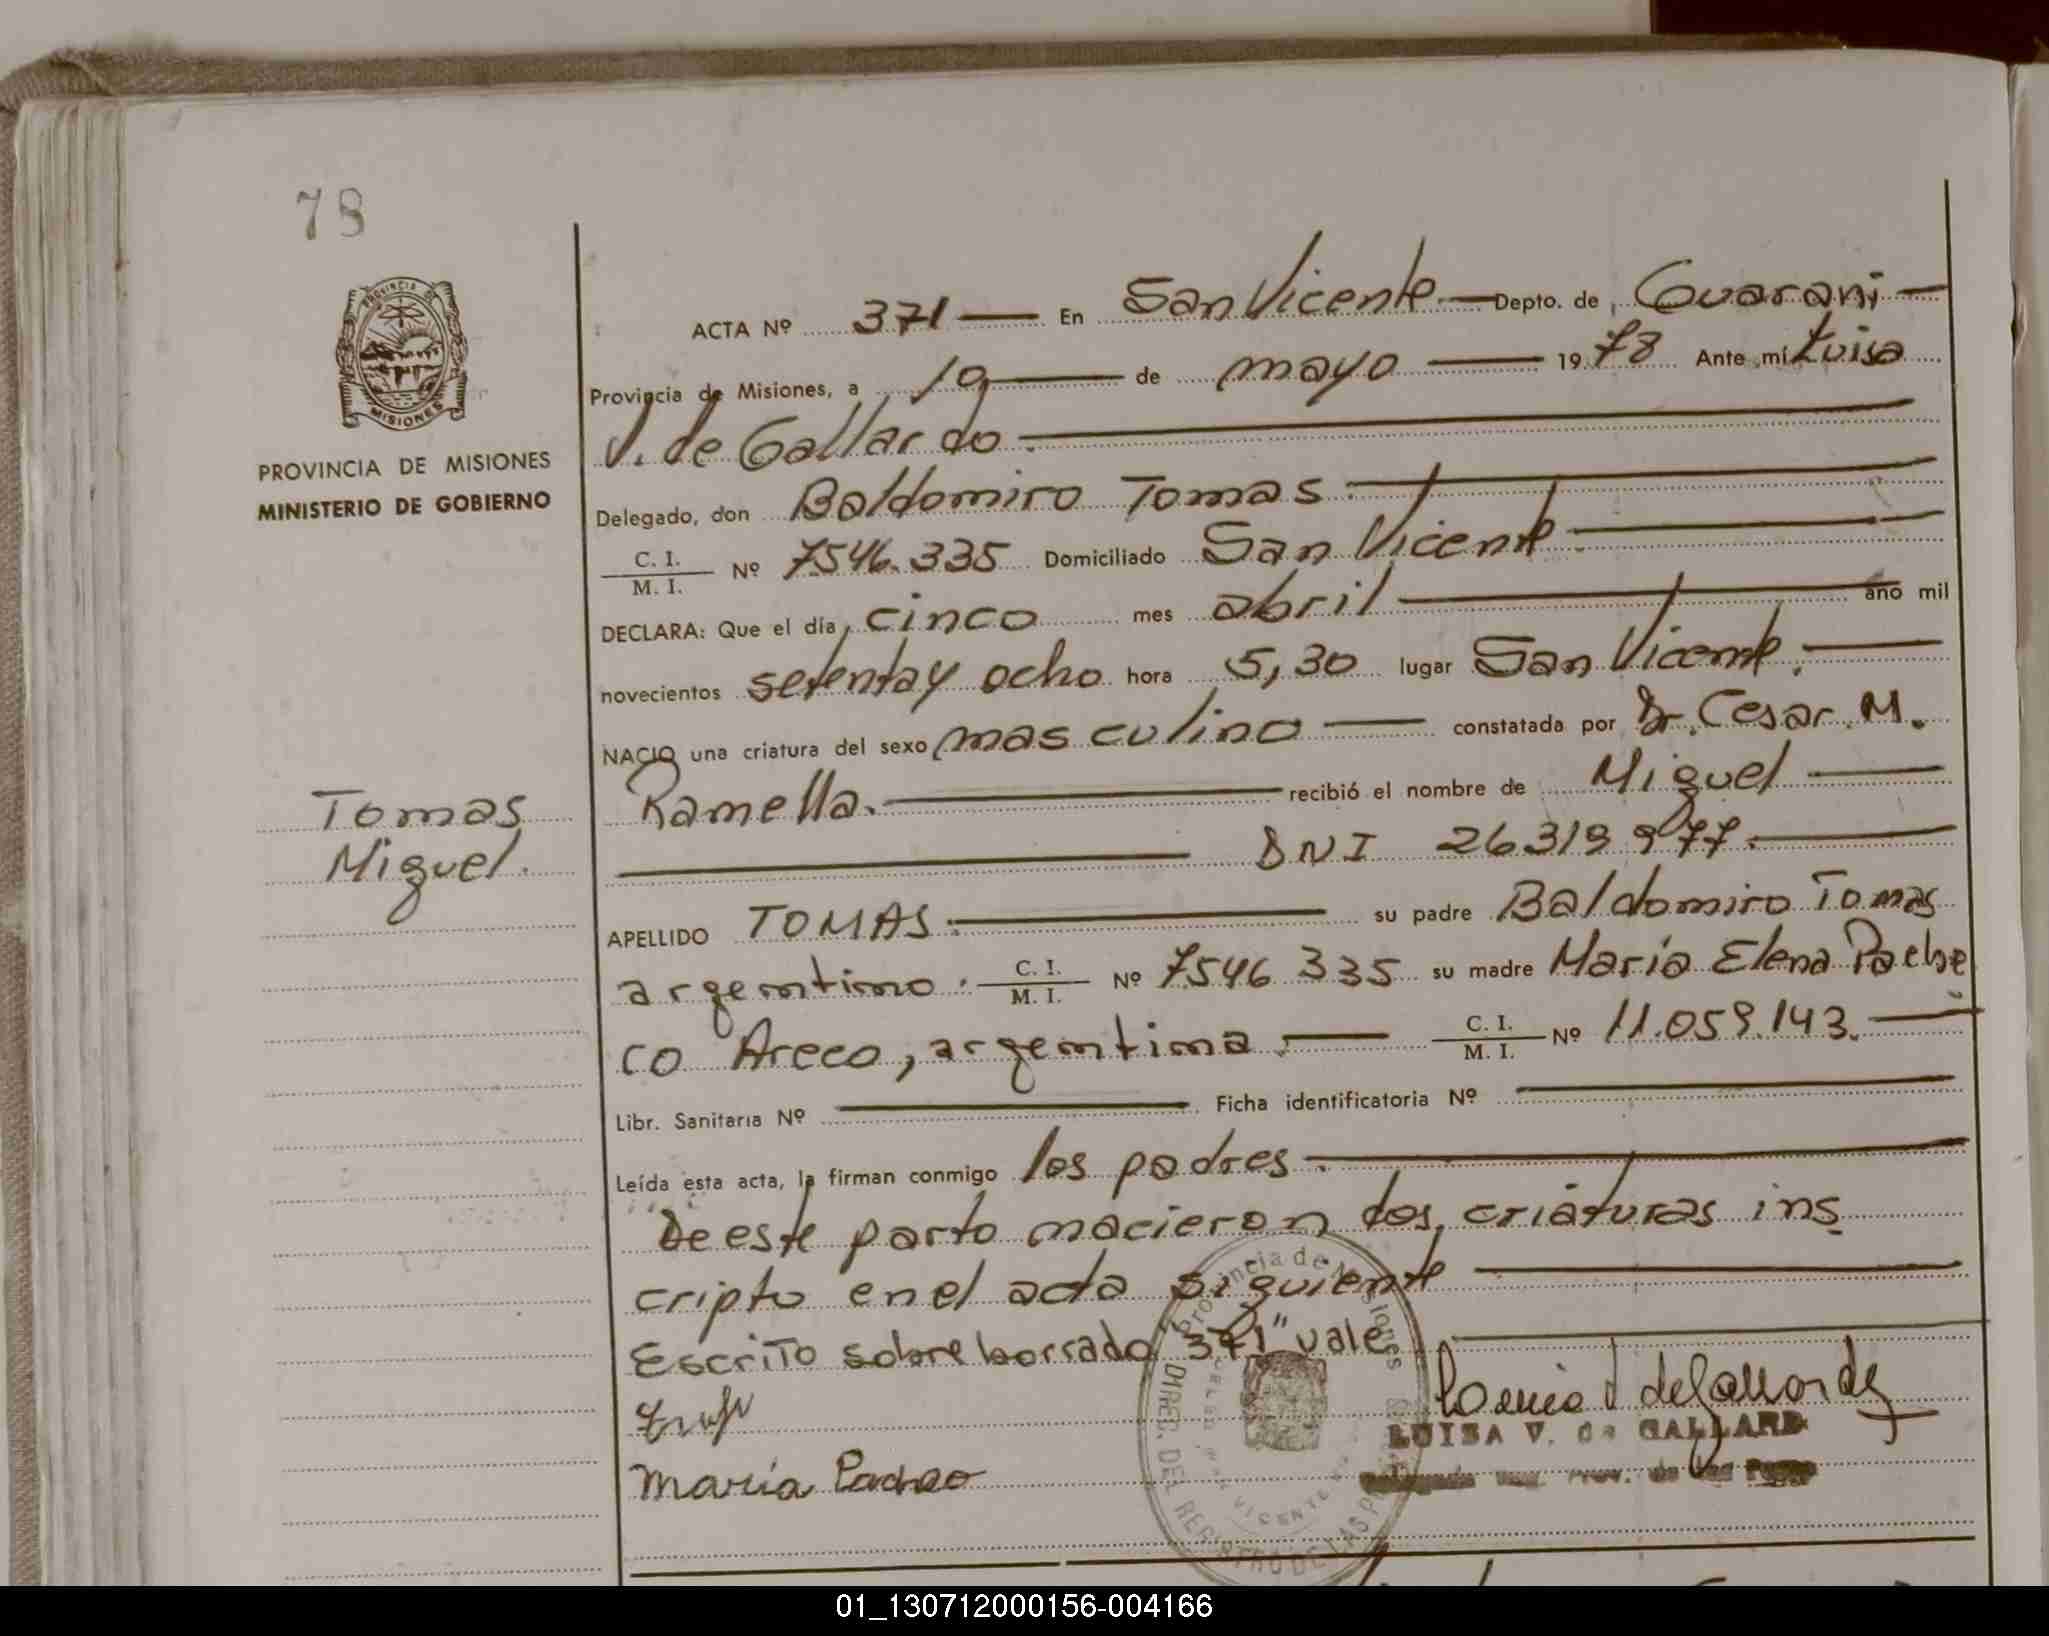 78
PROVINCIA DE MISIONES
PROVINCIA DE MISIONES
MINISTERIO DE GOBIERNO
Tomas
Miguel.
ACTA Nº 371 — En San Vicente — Depto. de Guarani —
Provincia de Misiones, a 10 — de mayo — 1978 Ante mí Luisa
V. de Gallardo. —
Delegado, don Baldomiro Tomas. —
C. I. / M. I. Nº 7546.335 Domiciliado San Vicente. —
DECLARA: Que el día, cinco mes abril — año mil
novecientos setenta y ocho hora 5,30 lugar San Vicente. —
NACIO una criatura del sexo masculino — constatada por Dr. Cesar. M.
Ramella. — recibió el nombre de Miguel —
— DNI 26319977. —
APELLIDO TOMAS. — su padre Baldomiro Tomas
argentino. C. I. / M. I. Nº 7546 335 su madre María Elena Pache
co Areco, argentina. — C. I. / M. I. Nº 11.059.143. —
Libr. Sanitaria Nº — Ficha identificatoria Nº —
Leída esta acta, la firman conmigo los padres. —
De este parto nacieron dos, criaturas ins
cripto en el acta siguiente —
Escrito sobre borrado "371" vale —
María Pacheco
LUISA V. de GALLARDO
Provincia de Misiones
DIREC. DEL REGISTRO DE LAS P
VICENTE
01_130712000156-004166